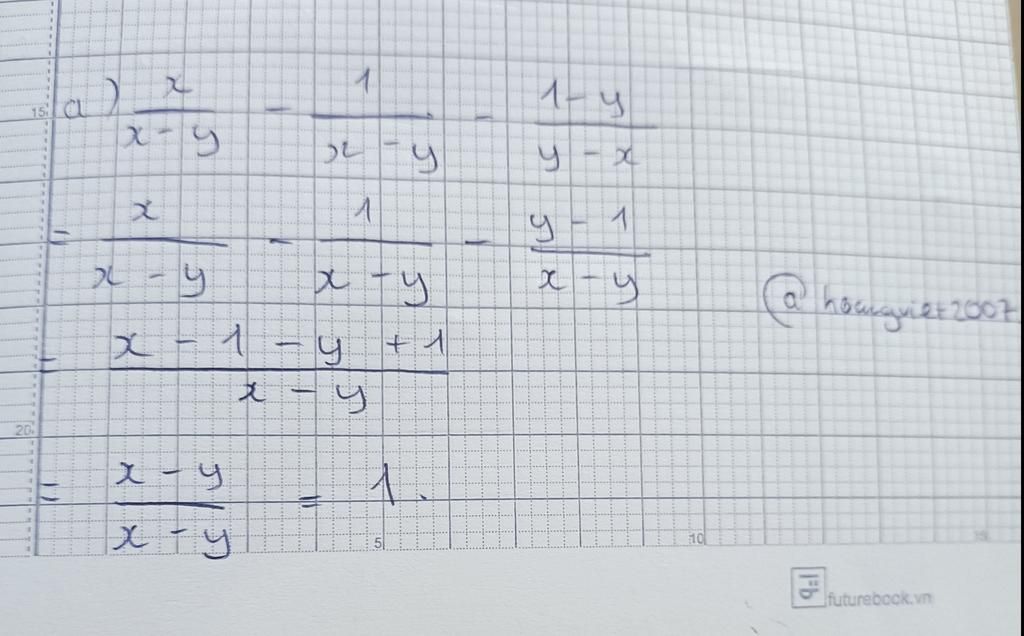 15
a) x/(x - y) - 1/(x - y) - (1 - y)/(y - x)
= x/(x - y) - 1/(x - y) - (y - 1)/(x - y)
@hoangviet2007
= (x - 1 - y + 1)/(x - y)
20
= (x - y)/(x - y) = 1.
5 10 15
futurebook.vn